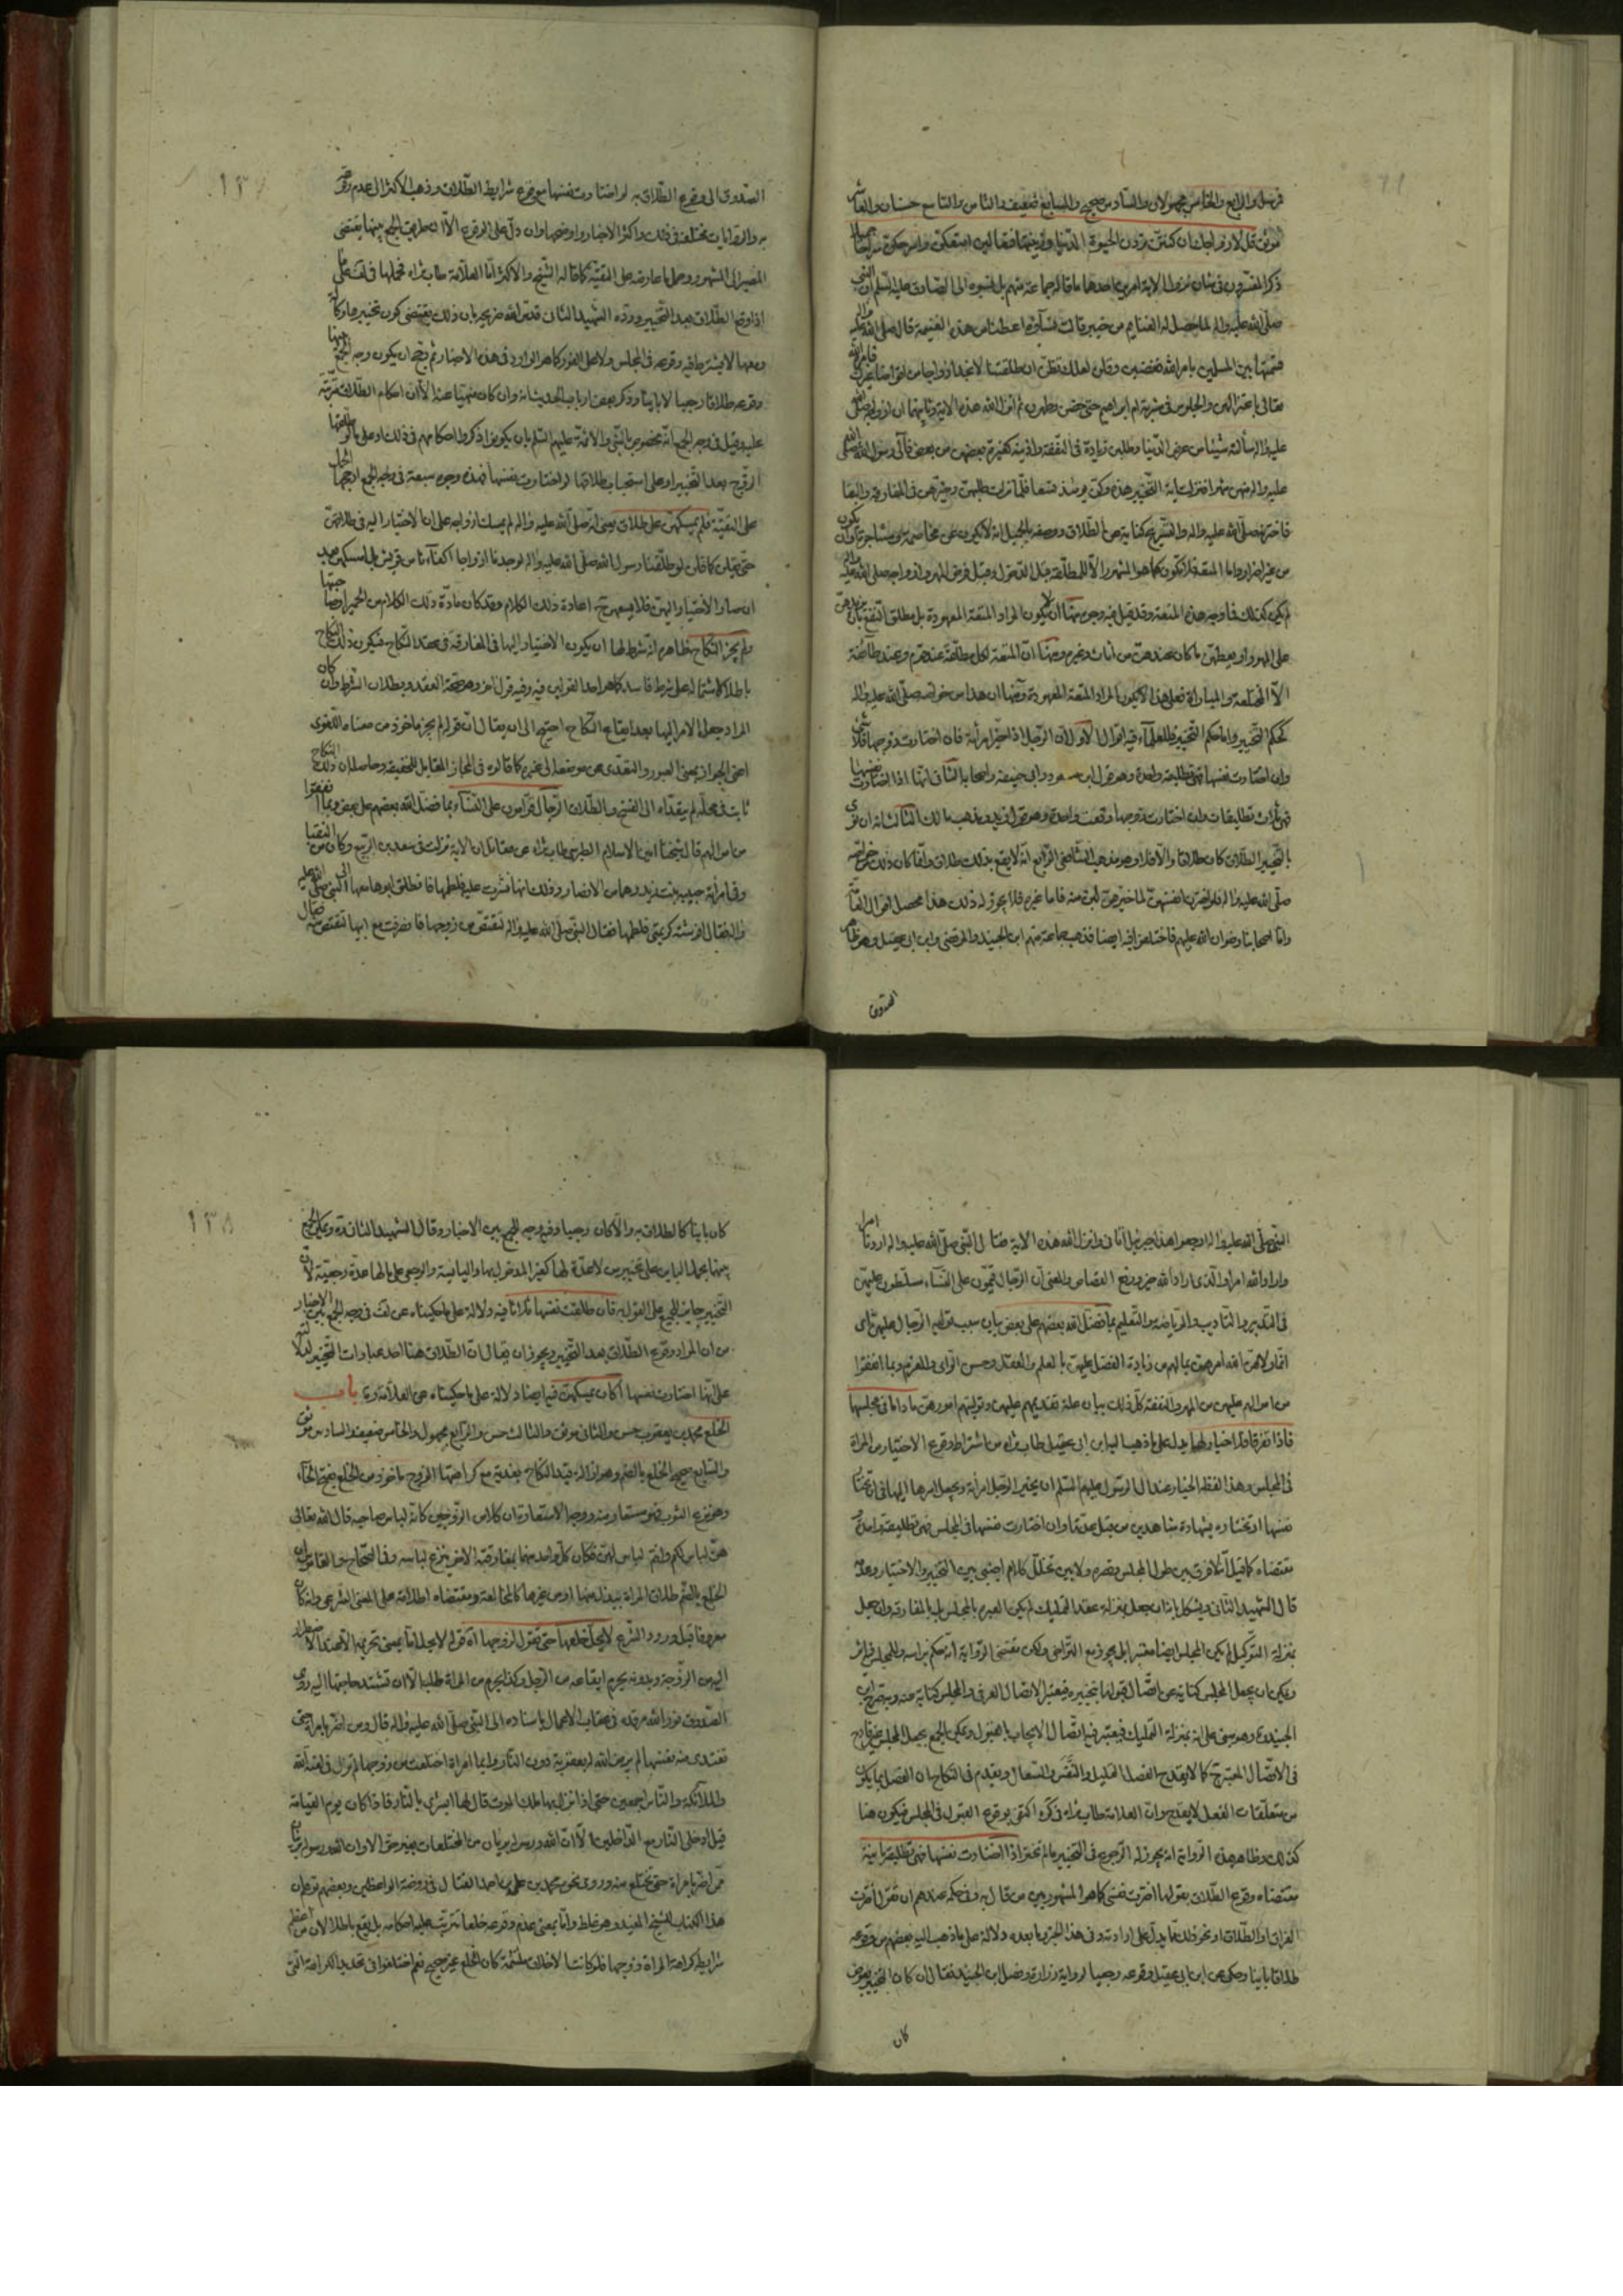 مرسل والرابع والخامس مجهولان والسادس صحيح والسابع ضعيف والثامن والتاسع حسنان والعاشر
موثق قل لازواجك ان كنتن تردن الحيوة الدنيا وزينتها فتعالين امتعكن واسرحكن سراحا جميلا
ذكر المفسرون في شان نزول الاية امرين احدهما ما قاله جماعة منهم بل نسبوه الى الصادق عليه السلم ان النبي
صلى الله عليه واله لما حصل له الغنايم من خيبر قالت نساؤه اعطنا من هذه الغنيمة قال صلى الله عليه واله
قسمتها بين المسلمين بامر الله فغضبن وقلن لعلك تظن ان طلقتنا لا نجد ازواجا من قومنا فامر الله
تعالى باعتزالهن والجلوس في مشربة ام ابراهيم حتى حضن وطهرن ثم انزل الله هذه الاية وثانيهما ان ازواجه صلى الله
عليه واله سألنه شيئا من عرض الدنيا وطلبن زيادة في النفقة واذينه لغيرة بعضهن من بعض فآلى رسول الله صلى
عليه واله منهن شهرا فنزلت اية التخيير هذه وكن يومئذ تسعا فلما نزلت طلبهن وخيرهن في المفارقة والبقا
فاخترنه صلى الله عليه واله والتسريح كناية عن الطلاق ووصفه بالجميل
من غير اضرار واما المتعة فلا تكون كما هو المشهور الا للمطلقة قبل الدخول وقبل فرض المهر وازواجه صلى الله عليه واله
لم يكن كذلك فما وجه هذه المتعة وقد قيل فيه وجوه منها ان لا يكون المراد المتعة المعهودة بل مطلق النفع بان يزيدهن
على المهر او يعطيهن ما كان عندهن من اثاث وغيره ومنها ان المتعة لكل مطلقة عند قوم وعند طائفة
الا المختلعة والمباراة فعلى هذا لا يكون المراد المتعة المعهودة ومنها ان هذا من خواصه صلى الله عليه واله
كحكم التخيير واما حكم التخيير فللعلماء فيه اقوال الاول ان الرجل اذا خير امرأته فان اختارت زوجها فلا شئ
وان اختارت نفسها تقع تطليقة واحدة وهو قول ابن مسعود وابي حنيفة واصحابه الثاني انها اذا اختارت نفسها
فهي ثلاث تطليقات وان اختارت زوجها وقعت واحدة وهو قول زيد ومذهب مالك الثالث انه ان نوى
بالتخيير الطلاق كان طلاقا والا فلا وهو مذهب الشافعي الرابع انه لا يقع بذلك طلاق وانما كان ذلك خواصه
صلى الله عليه واله فلو اخترن انفسهن لما خيرهن لبن منه فاما غيره فلا يجوز له ذلك هذا محصل اقوال العامة
واما اصحابنا رضوان الله عليهم فاختلفوا فيه ايضا فذهب جماعة منهم ابن الجنيد والمرتضى وابن ابي عقيل وهو ظاهر
الصدوق
١٣٧
الصدوق الى وقوع الطلاق به لو اختارت نفسها مع وقوع شرايط الطلاق وذهب الاكثر الى عدم وقوعه
به والروايات مختلفة في ذلك واكثر الاخبار واوضحها وان دل على الوقوع الا ان طريق الجمع بينها يقتضى
المصير الى المشهور وحمل ما عارضه على التقية كما قاله الشيخ والاكثر اما العلامة طاب ثراه فحملها في لف على ما
اذا وقع الطلاق بعد التخيير ورده الشهيد الثاني قدس الله ضريحه بان ذلك يقتضى كون تخييرها وكالة
ومعها لا يشترط فيه وقوعه في المجلس ولا على الفور كما هو الوارد في هذه الاخبار ثم رجح ان يكون وجه الجمع بينها
وقوعه طلاقا رجعيا لا باينا وذكر بعض ارباب الحديث انه وان كان منهيا عنه الا ان احكام الطلاق مترتبة
عليه وقيل في وجه الجمع انه مخصوص بالنبي والائمة عليهم السلم بان يكونوا ذكروا احكامهم في ذلك او على ما لو طلقها
الزوج بعد التخيير او على استحباب طلاقها لو اختارت نفسها فهذه وجوه سبعة في وجه الجمع ارجحها الحمل
على التقية فلم يمسكهن على طلاق يعني انه صلى الله عليه واله لم يمسك ازواجه على ان الاختيار اليه في طلاقهن
حتى يقلن كما قلن لو طلقنا رسول الله صلى الله عليه واله لوجدنا ازواجا اكفاء من قريش بل امسكهن بعد
ان صار الاختيار اليهن فلا يسعهن ح اعادة ذلك الكلام وقد كان مادة ذلك الكلام من الحمير
لم يجز النكاح ظاهره انه شرط لها ان يكون الاختيار اليها في المفارقة في عقد النكاح فيكون ذلك النكاح
باطلا لاشتماله على شرط فاسد كما هو احد القولين فيه وفيه قول اخر وهو صحة العقد وبطلان الشرط وان كان
المراد جعل الامر اليها بعد ايقاع النكاح احتيج الى ان يقال ان قوله لم يجز ماخوذ من معناه اللغوى
اعني الجواز بمعنى العبور والتعدى عن موضعه الى غيره كما قالوه في المجاز المقابل للحقيقة وحاصله ان ذلك النكاح
ثابت في محله لم يتعداه الى الفسخ والطلاق الرجال قوامون على النساء بما فضل الله بعضهم على بعض وبما انفقوا
من اموالهم قال شيخنا امين الاسلام الطبرسي طاب ثراه عن مقاتل ان الاية نزلت في سعد بن الربيع وكان من النقبا
وفي امرأته حبيبة بنت زيد وهما من الانصار وذلك انها نشزت عليه فلطمها فانطلق ابوها معها الى النبي صلى الله عليه
واله فقال افرشته كريمتي فلطمها فقال النبي صلى الله عليه واله لتقتص من زوجها فانصرفت مع ابيها لتقتص منه فقال
النبي صلى الله عليه واله ارجعوا هذا جبرئيل اتاني وانزل الله هذه الاية فقال النبي صلى الله عليه واله اردنا امرا
واراد الله امرا والذي اراد الله خير ورفع القصاص والمعنى ان الرجال قيمون على النساء مسلطون عليهن
في التدبير والتاديب والرياضة والتعليم بما فضل الله بعضهم على بعض بيان سبب تولية الرجال عليهن اى
انما ولاهم الله امرهن بما لهم من زيادة الفضل عليهن بالعلم والعقل وحسن الراى والعزم وبما انفقوا
من اموالهم عليهن من المهر والنفقة كل ذلك بيان علة تقديمهم عليهن وتوليتهم امورهن ما داما في مجلسها
فاذا تفرقا فلا خيار لها يدل على ما ذهب اليه ابن ابي عقيل طاب ثراه من اشتراط وقوع الاختيار من المراة
في المجلس وهذا لفظه الخيار عند ال الرسول عليهم السلم ان يخير الرجل امرأته ويجعل امرها اليها في ان تختار
نفسها او تختاره بشهادة شاهدين من قبل عدتها وان اختارت نفسها في المجلس فهي تطليقة واحدة
مقتضاه كما قيل انه لا فرق بين طول المجلس وقصره ولا بين تخلل كلام اجنبي بين التخيير والاختيار وعدمه
قال الشهيد الثاني ويشكل بانه ان جعل بمنزلة عقد التمليك لم يكن العبرة بالمجلس بل بالمقارنة وان جعل
بمنزلة التوكيل لم يكن المجلس ايضا معتبرا بل يجوز مع التراخي ولكن مقتضى الرواية انه حكم براسه وللمجلس فيه اثر
ويمكن ان يجعل المجلس كناية عن اتصال قولها بتخييره فيعتبر الاتصال العرفي والمجلس كناية عنه وبه صرح ابن
الجنيد وهو مبني على انه بمنزلة التمليك فيعتبر فيه اتصال الايجاب بالقبول ويمكن الجمع بجعل المجلس غير قادح
في الاتصال المعتبر ح كما لا يقدح الفصل القليل والتنفس والسعال ويقدم في النكاح ان الفصل بما يكون
من متعلقات الفعل لا يقدح وان العلامة طاب ثراه في كره اكتفى بوقوع القبول في المجلس فيكون هنا
كذلك وظاهر هذه الرواية انه يجوز له الرجوع في التخيير ما لم تختر اذا اختارت نفسها فهي تطليقة باينة
مقتضاه وقوع الطلاق بقولها اخترت نفسي كما هو المشهور بين من قال به وفي حكمه عندهم ان تقول اخترت
الفراق او الطلاق او نحو ذلك مما يدل على ارادته وفي هذا الخبر وما بعده دلالة على ما ذهب اليه بعضهم من وقوعه
طلاقا باينا وحكي عن ابن ابي عقيل وقوعه رجعيا لرواية زرارة وفصل ابن الجنيد فقال ان كان التخيير بعوض
كان
١٣٨
كان باينا كالطلاق به والا كان رجعيا وفيه وجه للجمع بين الاخبار وقال الشهيد الثاني قدة ويمكن الجمع
بينها بحمل الباين على تخيير من لا عدة لها كغير المدخول بها واليائسة والرجعي على ما لها عدة رجعية لان
التخيير جايز للجميع على القول به فان طلقت نفسها ثلاثا فيه دلالة على ما حكيناه عن لف في وجه الجمع بين الاخبار
من ان المراد وقوع الطلاق بعد التخيير ويجوز ان يقال ان الطلاق هنا احد عبارات التخيير
على انها اختارت نفسها اكان يمسكهن فيه ايضا دلالة على ما حكيناه عن العلامة ره باب
الخلع محمد بن يعقوب حسن والثاني موثق والثالث حسن والرابع مجهول والخامس ضعيف والسادس موثق
والسابع صحيح الخلع بالضم وهو ازالة قيد النكاح بفدية مع كراهتها الزوج ماخوذ من الخلع بفتح الخاء
وهو نزع الثوب فهو مستعار منه ووجه الاستعارة ان كلا من الزوجين كانه لباس صاحبه قال الله تعالى
هن لباس لكم وانتم لباس لهن فكان كل واحد منهما بمفارقته الاخر ينزع لباسه وفي الصحاح والقاموس ان
الخلع بالضم طلاق المراة ببدل منها او من غيرها كالمخالعة ومقتضاه اطلاقه على المعنى الشرعي وانه كان
معروفا قبل ورود الشرع لا يحل خلعها حتى تقول لزوجها آه قوله لا يحل اما بمعنى تحريمه
اليه من الزوجة وبدونه يحرم ايقاعه من الرجل وكذا يحرم من المراة طلبه الا ان تشتد حاجتها اليه روى
الصدوق نور الله مرقده في عقاب الاعمال باسناده الى النبي صلى الله عليه واله قال ومن اضر بامراة حتى
تفتدى منه نفسها لم يرض الله له بعقوبة دون النار وايما امراة اختلعت من زوجها لم تزل في لعنة الله
وملائكته والناس اجمعين حتى اذا نزل بها ملك الموت قال لها ابشرى بالنار فاذا كان يوم القيامة
قيل ادخلي النار مع الداخلين الا ان الله ورسوله بريان من المختلعات بغير حق الا وان الله ورسوله بريئان
ممن اضر بامراة حتى تختلع منه وروى نحوه محمد بن علي بن احمد الفتال في روضة الواعظين وبعضهم توهم ان
هذا الكتاب للشيخ المفيد وهو غلط واما بمعنى عدم وقوعه خلعا تترتب عليه احكامه بل يقع باطلا لان من اعظم
شرايطه كراهة المراة زوجها فلو كانت الاخلاق ملتئمة كان الخلع غير صحيح نعم اختلفوا في تحديد الكراهة التي